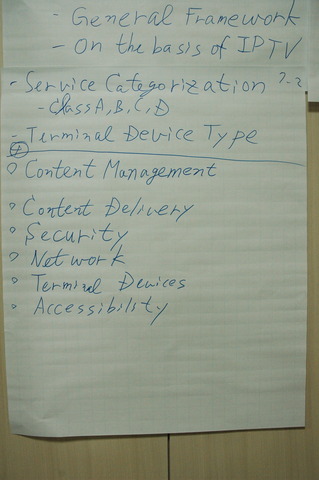 - General Framework
- On the basis of IPTV
- Service Categorization ?-2
- Class A, B, C, D
- Terminal Device Type
+
° Content Management
° Content Delivery
° Security
° Network
° Terminal Devices
° Accessibility